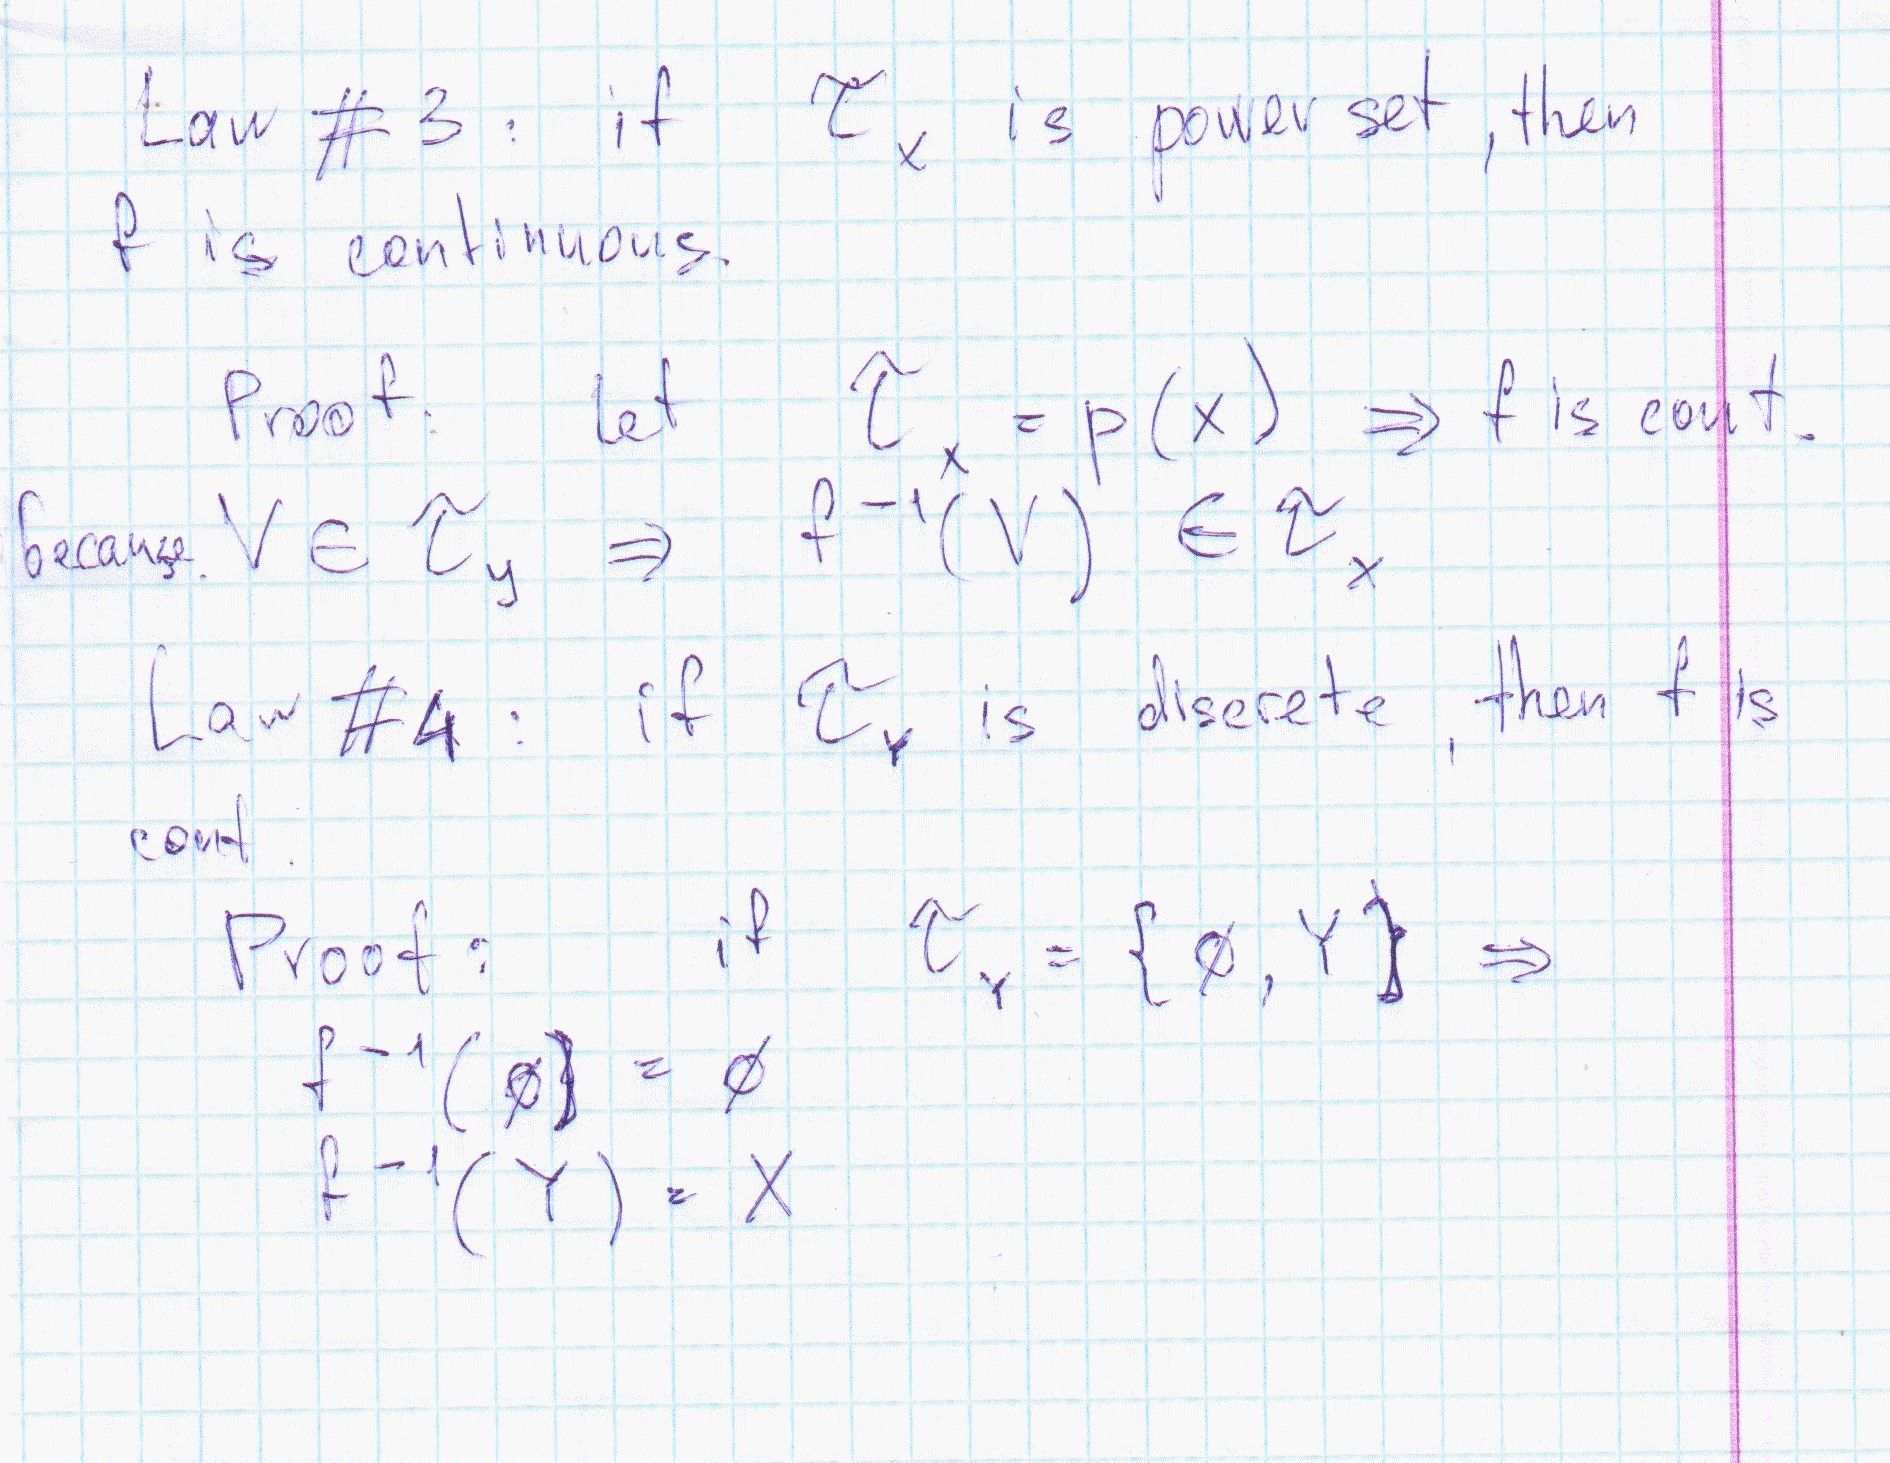 Law #3: if τ_X is power set, then
f is continuous.
Proof: let τ_X = p(X) ⇒ f is cont.
because V ∈ τ_y ⇒ f⁻¹(V) ∈ τ_X
Law #4: if τ_Y is discrete, then f is
cont.
Proof: if τ_Y = {∅, Y} ⇒
f⁻¹(∅) = ∅
f⁻¹(Y) = X